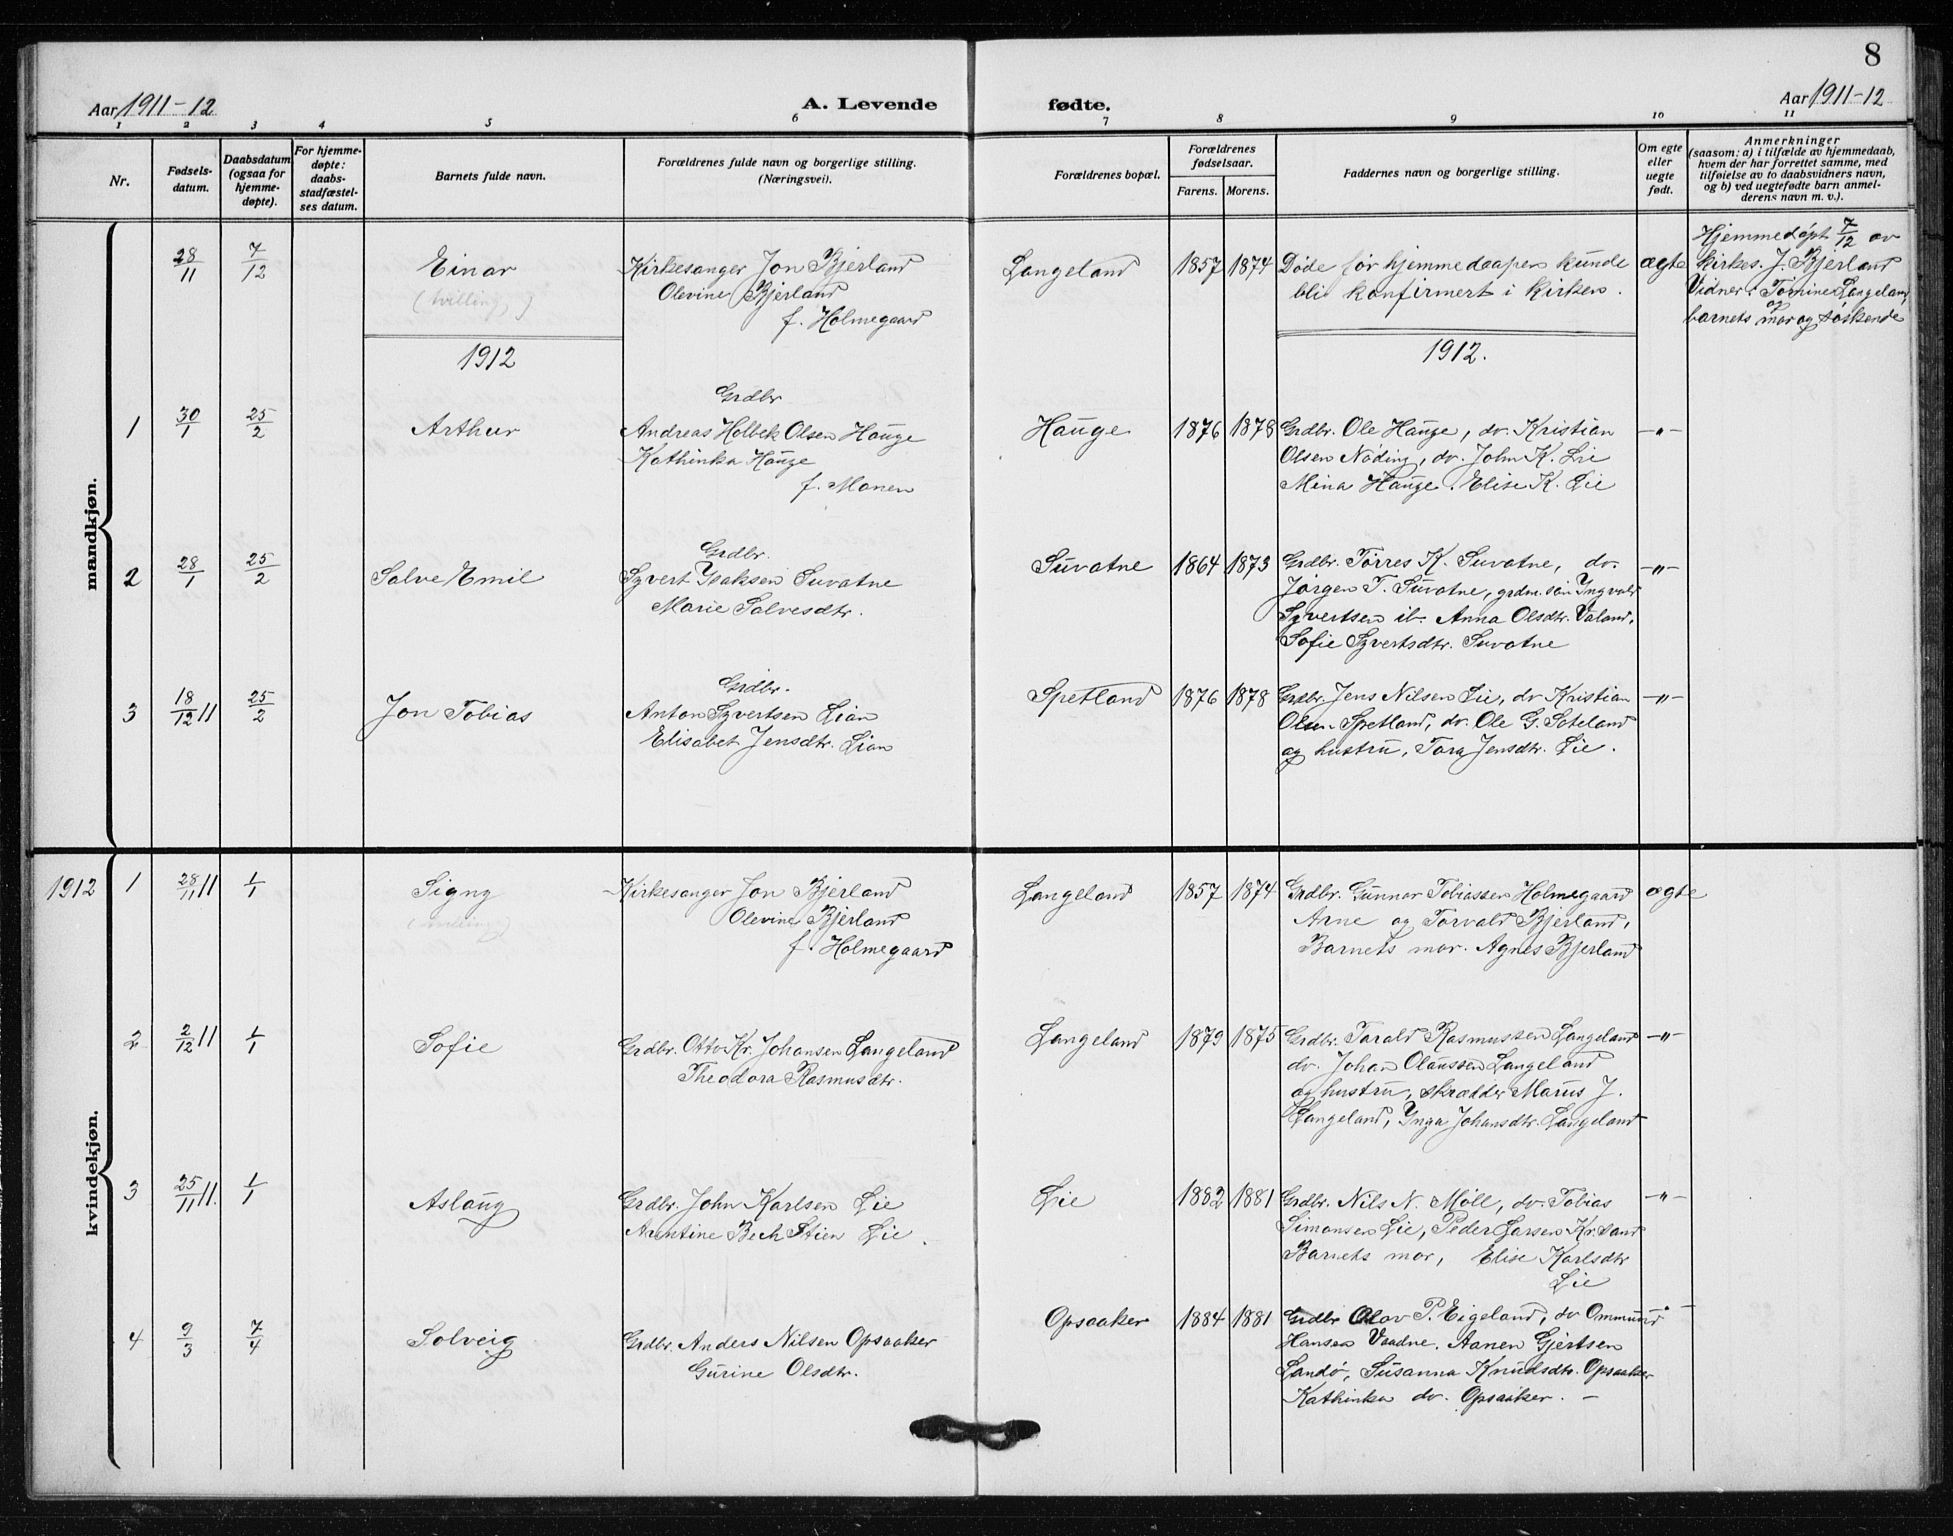 8
Aar 1911-12 A. Levende fødte. Aar 1911-12
1 2 3 4 5 6 7 8 9 10 11
Nr.
Fødsels-
datum.
Daabsdatum
(ogsaa for
hjemme-
døpte).
For hjemme-
døpte:
daabs-
stadfæstel-
ses datum.
Barnets fulde navn.
Forældrenes fulde navn og borgerlige stilling.
(Næringsvei).
Forældrenes bopæl.
Forældrenes
fødselsaar.
Farens. Morens.
Faddernes navn og borgerlige stilling.
Om egte
eller
uegte
født.
Anmerkninger
(saasom: a) i tilfælde av hjemmedaab,
hvem der har forrettet samme, med
tilføielse av to daabsvidners navn,
og b) ved uegtefødte barn anmel-
derens navn m. v.).
mandkjøn.
28/11 7/12
Einar
(tvilling)
Kirkesanger Jon Bjerland
Olevine Bjerland
f. Holmegaard
Langeland 1857 1874
Døde før hjemmedaapen kunde
bli konfirmert i kirken.
ægte
Hjemmedøpt 7/12 av
kirkes. J. Bjerland
Vidner: Tomine Langeland
og
barnets mor og søskende
1912 1912.
1 30/1 25/2
Arthur
Grdbr
Andreas Holbek Olsen Hauge
Kathinka Hauge
f. Monen
Hauge 1876 1878
Grdbr. Ole Hauge, do. Kristian
Olsen Nøding, do. John K. Lie
Mina Hauge. Elise K. Lie
-"-
2 28/1 25/2
Salve Emil
Grdbr.
Syvert Isaksen Suvatne
Marie Salvesdtr.
Suvatne 1864 1873
Grdbr. Tørres K. Suvatne, do.
Jørgen T. Suvatne, grdm. søn Yngvald
Syvertsen ib. Anna Olsdtr. Valand,
Sofie Syvertsdtr. Suvatne
-"-
3 18/12 11 25/2
Jon Tobias
Grdbr.
Anton Syvertsen Lian
Elisabet Jensdtr. Lian
Spetland 1876 1878
Grdbr. Jens Nilsen Lie, do Kristian
Olsen Spetland, do. Ole G. Soteland
og hustru, Tora Jensdtr. Lie.
-"-
kvindekjøn.
1912 1 28/11 11 1/1
Signy
(tvilling)
Kirkesanger Jon Bjerland
Olevine Bjerland
f. Holmegaard
Langeland 1857 1874
Grdbr. Gunnar Tobiassen Holmegaard
Arne og Torvald Bjerland,
Barnets mor. Agnes Bjerland
ægte
2 2/12 11 1/1
Sofie
Grdbr. Otto Kr. Johansen Langeland
Theodora Rasmusdtr.
Langeland 1879 1875
Grdbr. Tarald Rasmussen Langeland
do. Johan Olaussen Langeland
og hustru, skrædder Marius J.
Langeland, Ynga Johansdtr. Langeland
-"-
3 25/11 11. 1/1
Aslaug
Grdbr. John Karlsen Lie
Arntine Bech Stien Lie.
Lie 1882 1881
Grdbr. Nils N. Møll, do. Tobias
Simonsen Lie, Peder Larsen Kr.sand
Barnets mor, Elise Karlsdtr
Lie
-"-
4 9/3 7/4
Solveig
Grdbr. Anders Nilsen Opsaaker
Gurine Olsdtr.
Opsaaker 1884 1881
Grdbr Olav P. Eigeland, do Ommund
Hansen Vaadne. Aanen Gjertsen
Landø, Susanna Knudsdtr. Opsaaker
Kathinka do. Opsaaker. -